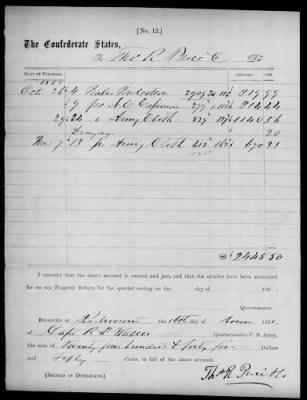 [No. 12.]
The Confederate States,
To Thos R Price & Co Dr.
DATE OF PURCHASE. DOLLARS. CTS.
Oct 26 4 Bales 819 99
9 ps N.C. Cassimere 314 44
29 24 " Army Cloth 829 1140 56
Drayage 20
Nov 7 13 ps Army Cloth 412 670 31
$2445 50
I CERTIFY that the above account is correct and just, and that the articles have been accounted
for on my Property Return for the quarter ending on the day of 186 .
Quartermaster.
RECEIVED AT Richmond the 16th of Novem 1861,
of Capt R P Waller Quartermaster C. S. Army,
the sum of twenty four hundred & forty five Dollars
and fifty Cents, in full of the above account.
(SIGNED IN DUPLICATE.) Thos R Price & Co